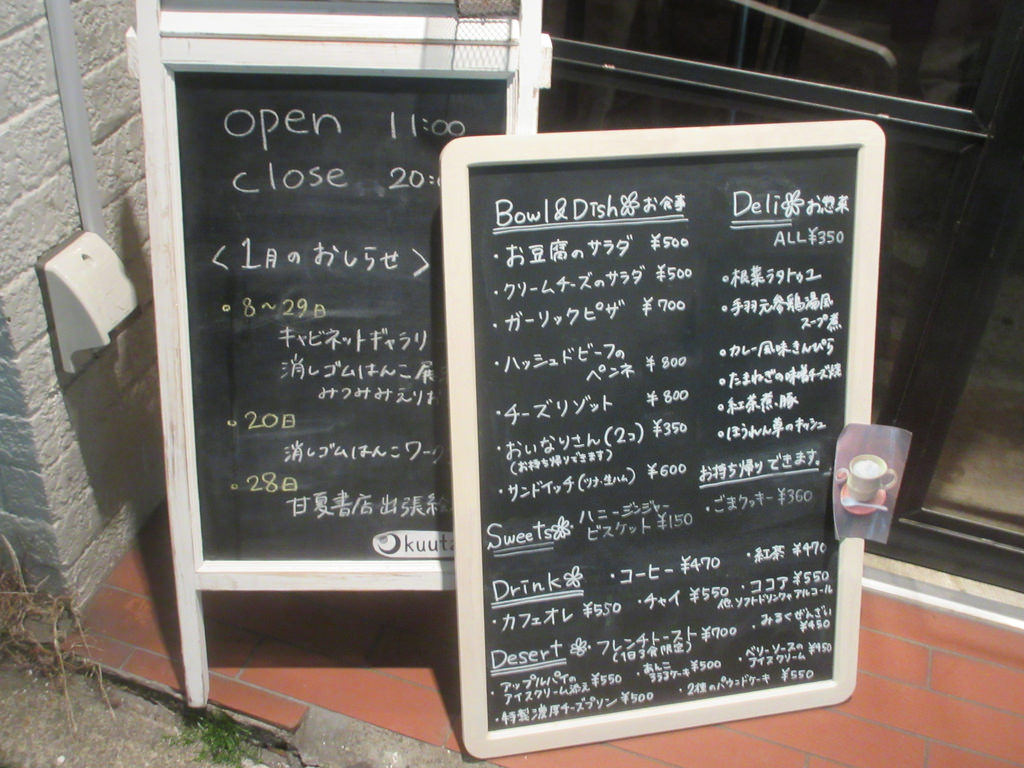 open 11:00
close 20:
〈1月のおしらせ〉
8〜29日
キャビネットギャラリ
消しゴムはんこ展
みつみみえりお
20日
消しゴムはんこワー
28日
甘夏書店出張絵
kuuta
Bowl&Dish お食事
・お豆腐のサラダ ¥500
・クリームチーズのサラダ ¥500
・ガーリックピザ ¥700
・ハッシュドビーフの
ペンネ ¥800
・チーズリゾット ¥800
・おいなりさん(2コ) ¥350
(お持ち帰りできます)
・サンドイッチ(ツナ・生ハム) ¥600
Deli お惣菜
ALL¥350
・根菜ラタトゥユ
・手羽元参鶏湯風
スープ煮
・カレー風味きんぴら
・たまねぎの味噌チーズ焼
・紅茶煮豚
・ほうれん草のキッシュ
お持ち帰りできます。
Sweets ハニージンジャー
ビスケット ¥150
・ごまクッキー ¥360
Drink ・コーヒー ¥470 ・紅茶 ¥470
・カフェオレ ¥550 ・チャイ ¥550 ・ココア ¥550
他、ソフトドリンクやアルコール
Desert ・フレンチトースト ¥700
(1日3食限定)
・みるくぜんざい
¥450
・アップルパイの
アイスクリーム添え ¥550
・あんこ
ケーキ ¥500
・ベリーソースの
アイスクリーム ¥450
・特製濃厚チーズプリン ¥500 ・2種のパウンドケーキ ¥550